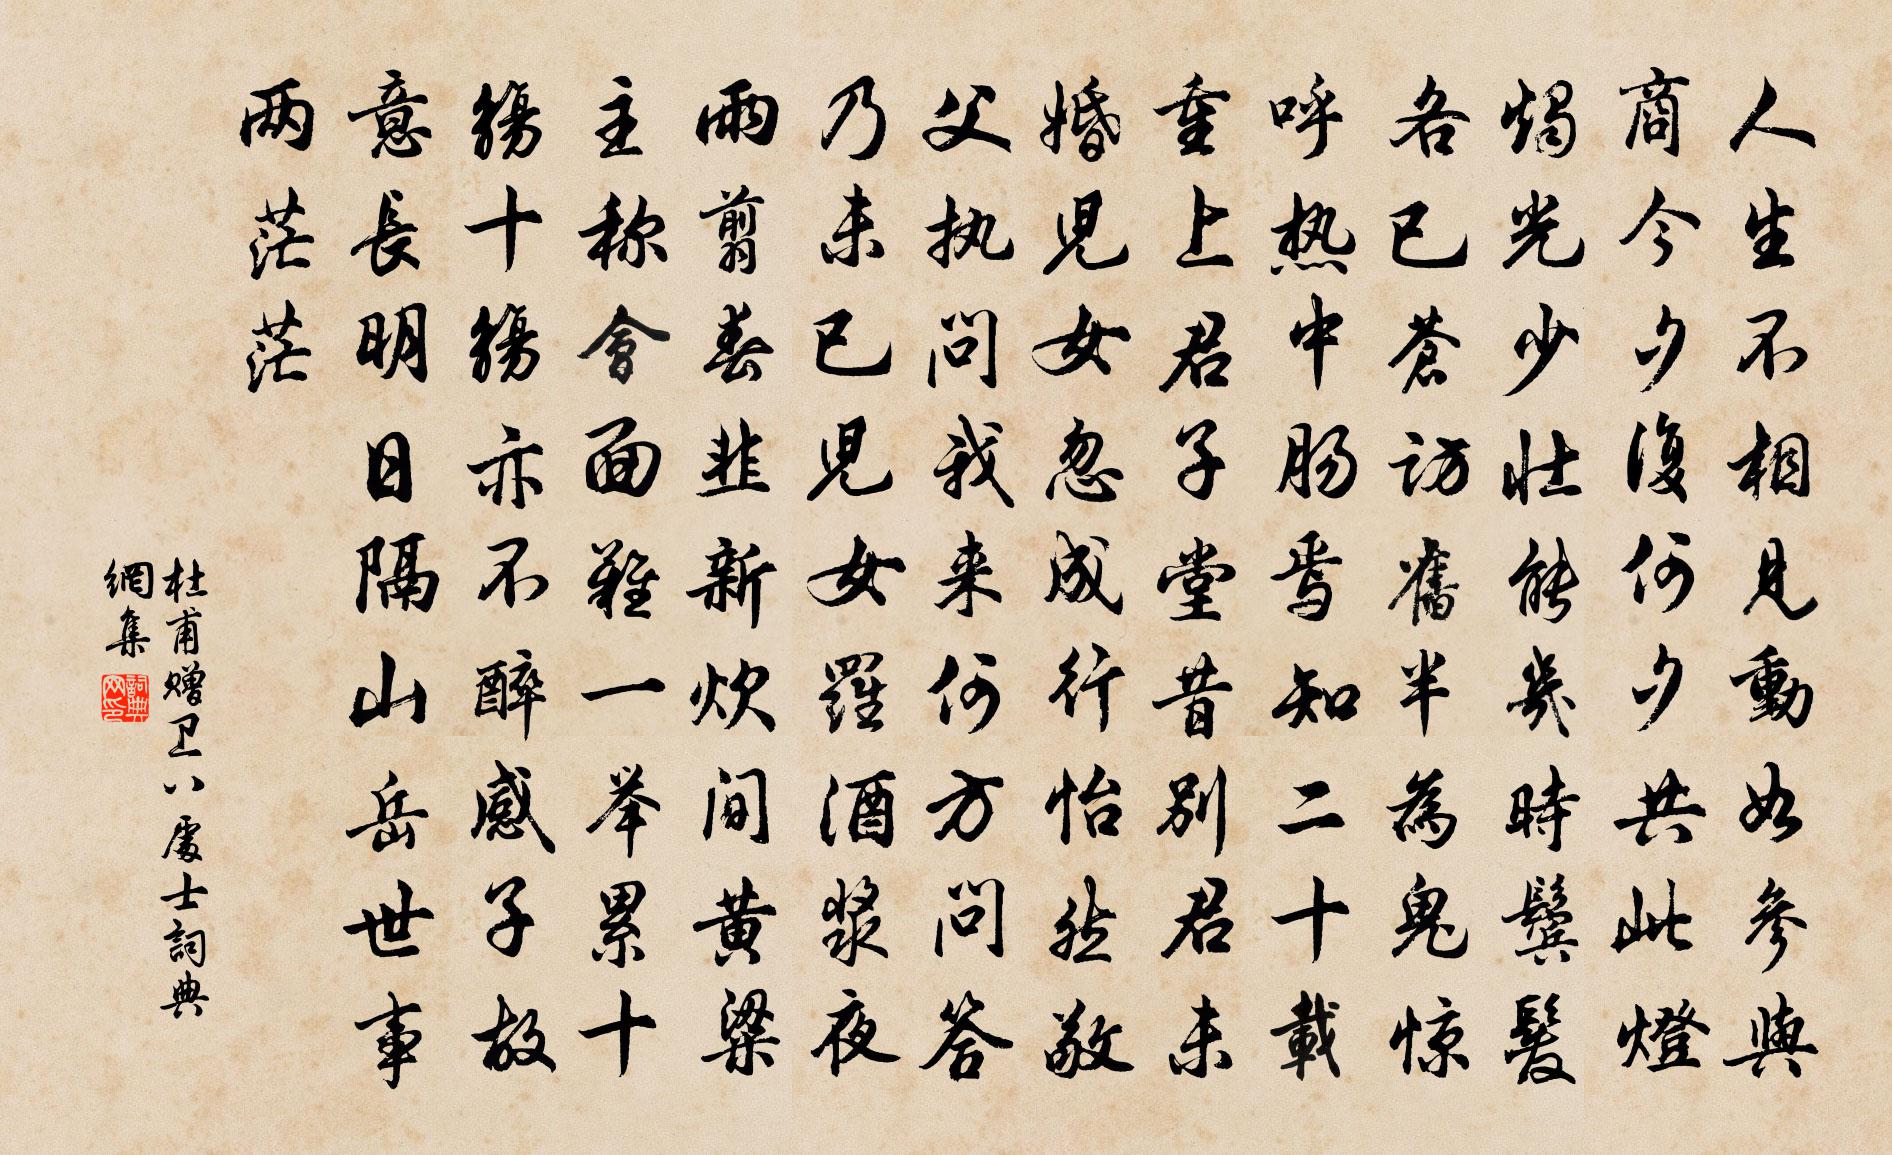 人生不相見動如參與
商今夕復何夕共此燈
燭光少壯能幾時鬢髮
各已蒼訪舊半為鬼惊
呼热中肠焉知二十載
重上君子堂昔别君未
婚兒女忽成行怡然敬
父执問我来何方問答
乃未已兒女羅酒漿夜
雨翦春韭新炊间黄粱
主称會面難一举累十
觴十觴亦不醉感子故
意長明日隔山岳世事
两茫茫
杜甫赠卫八處士詞典
網集
詞典
网印